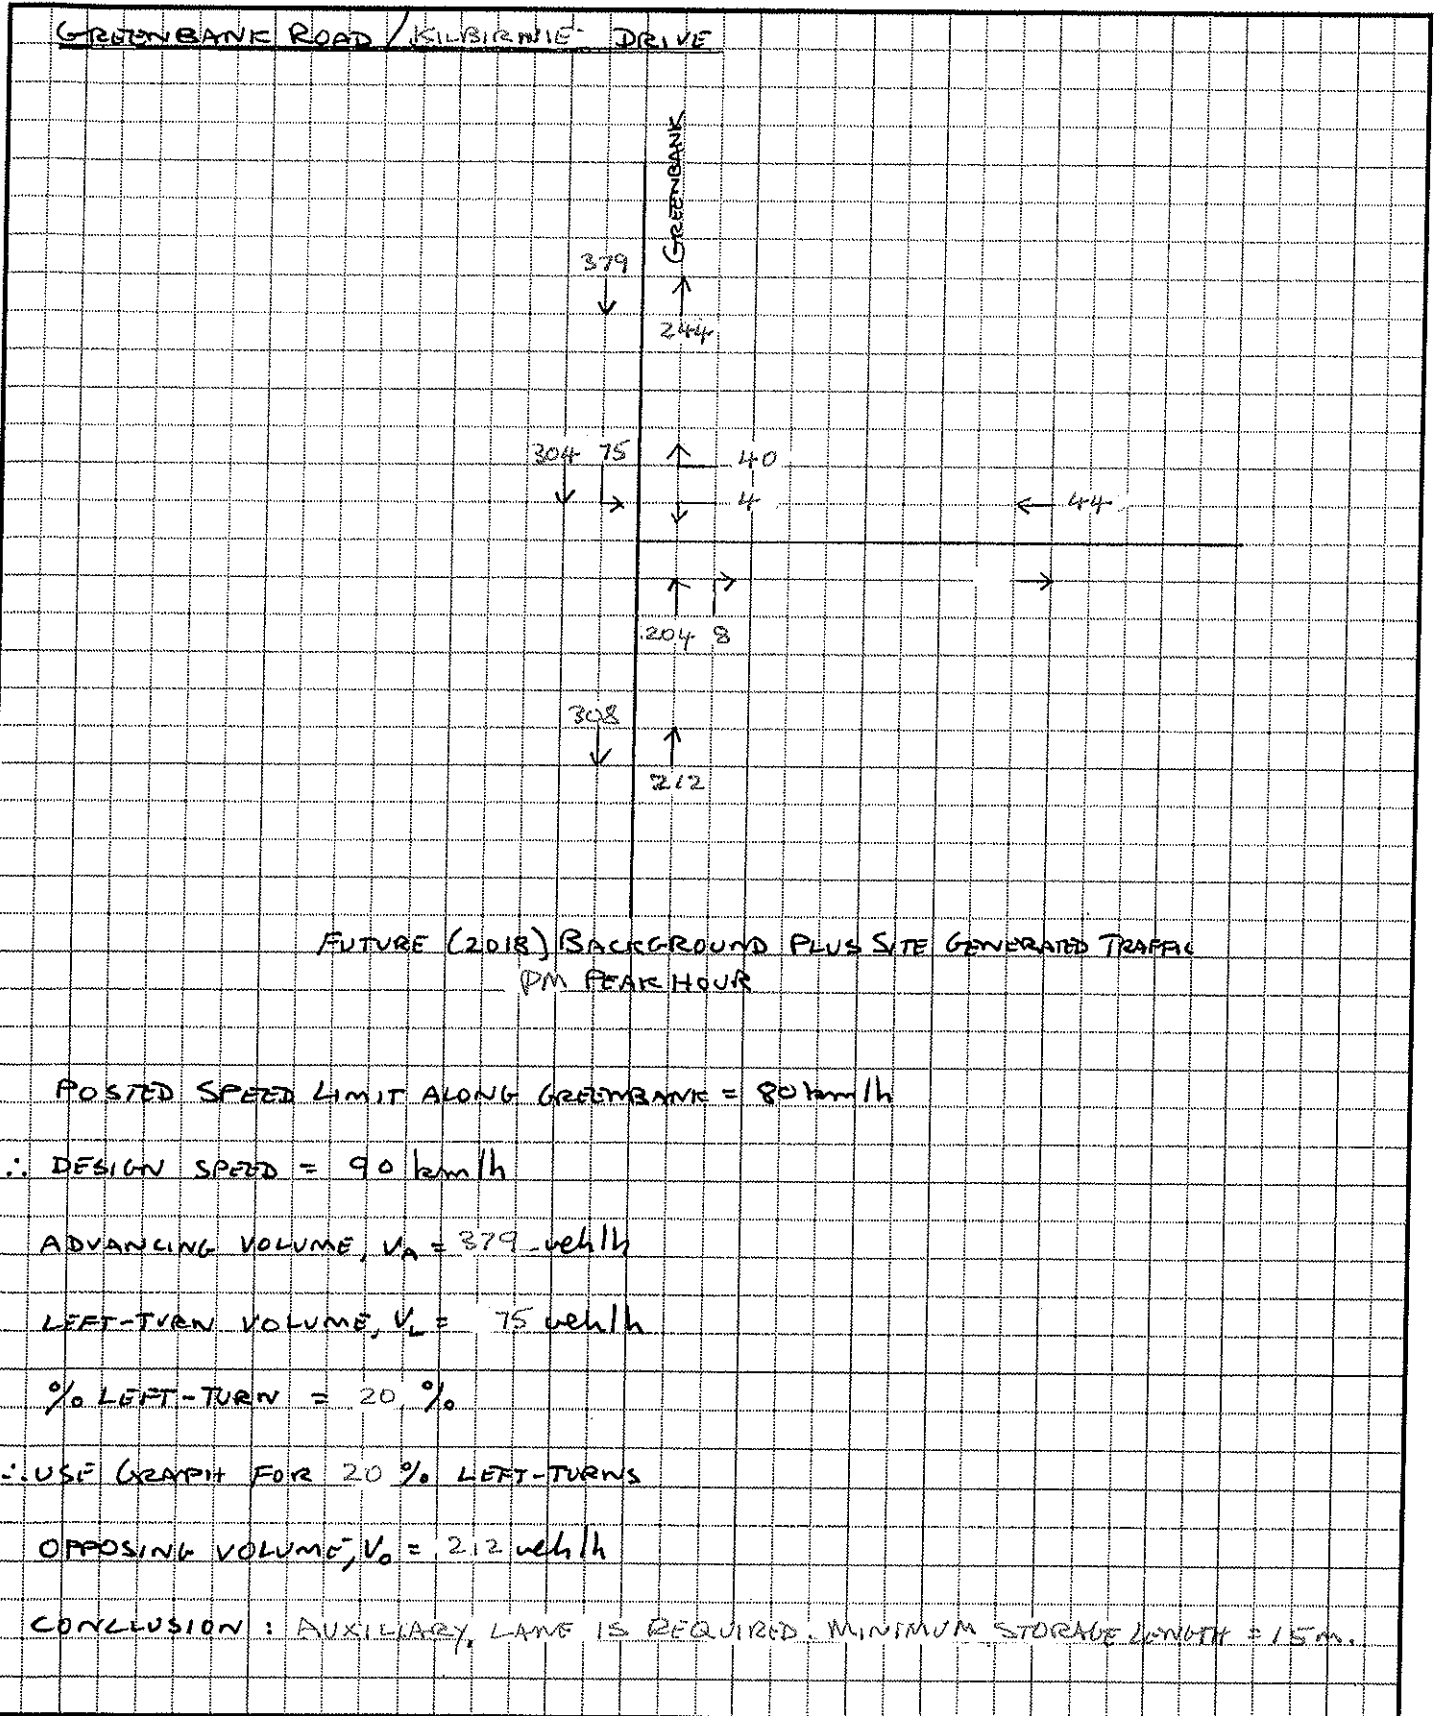 GREENBANK ROAD / KILBIRNIE DRIVE
GREENBANK
379
244
304 75
40
4
44
204 8
308
212
FUTURE (2018) BACKGROUND PLUS SITE GENERATED TRAFFIC
PM PEAK HOUR
POSTED SPEED LIMIT ALONG GREENBANK = 80 km/h
∴ DESIGN SPEED = 90 km/h
ADVANCING VOLUME, VA = 379 veh/h
LEFT-TURN VOLUME, VL = 75 veh/h
% LEFT-TURN = 20 %
∴ USE GRAPH FOR 20 % LEFT-TURNS
OPPOSING VOLUME, Vo = 212 veh/h
CONCLUSION : AUXILIARY LANE IS REQUIRED. MINIMUM STORAGE LENGTH = 15m.